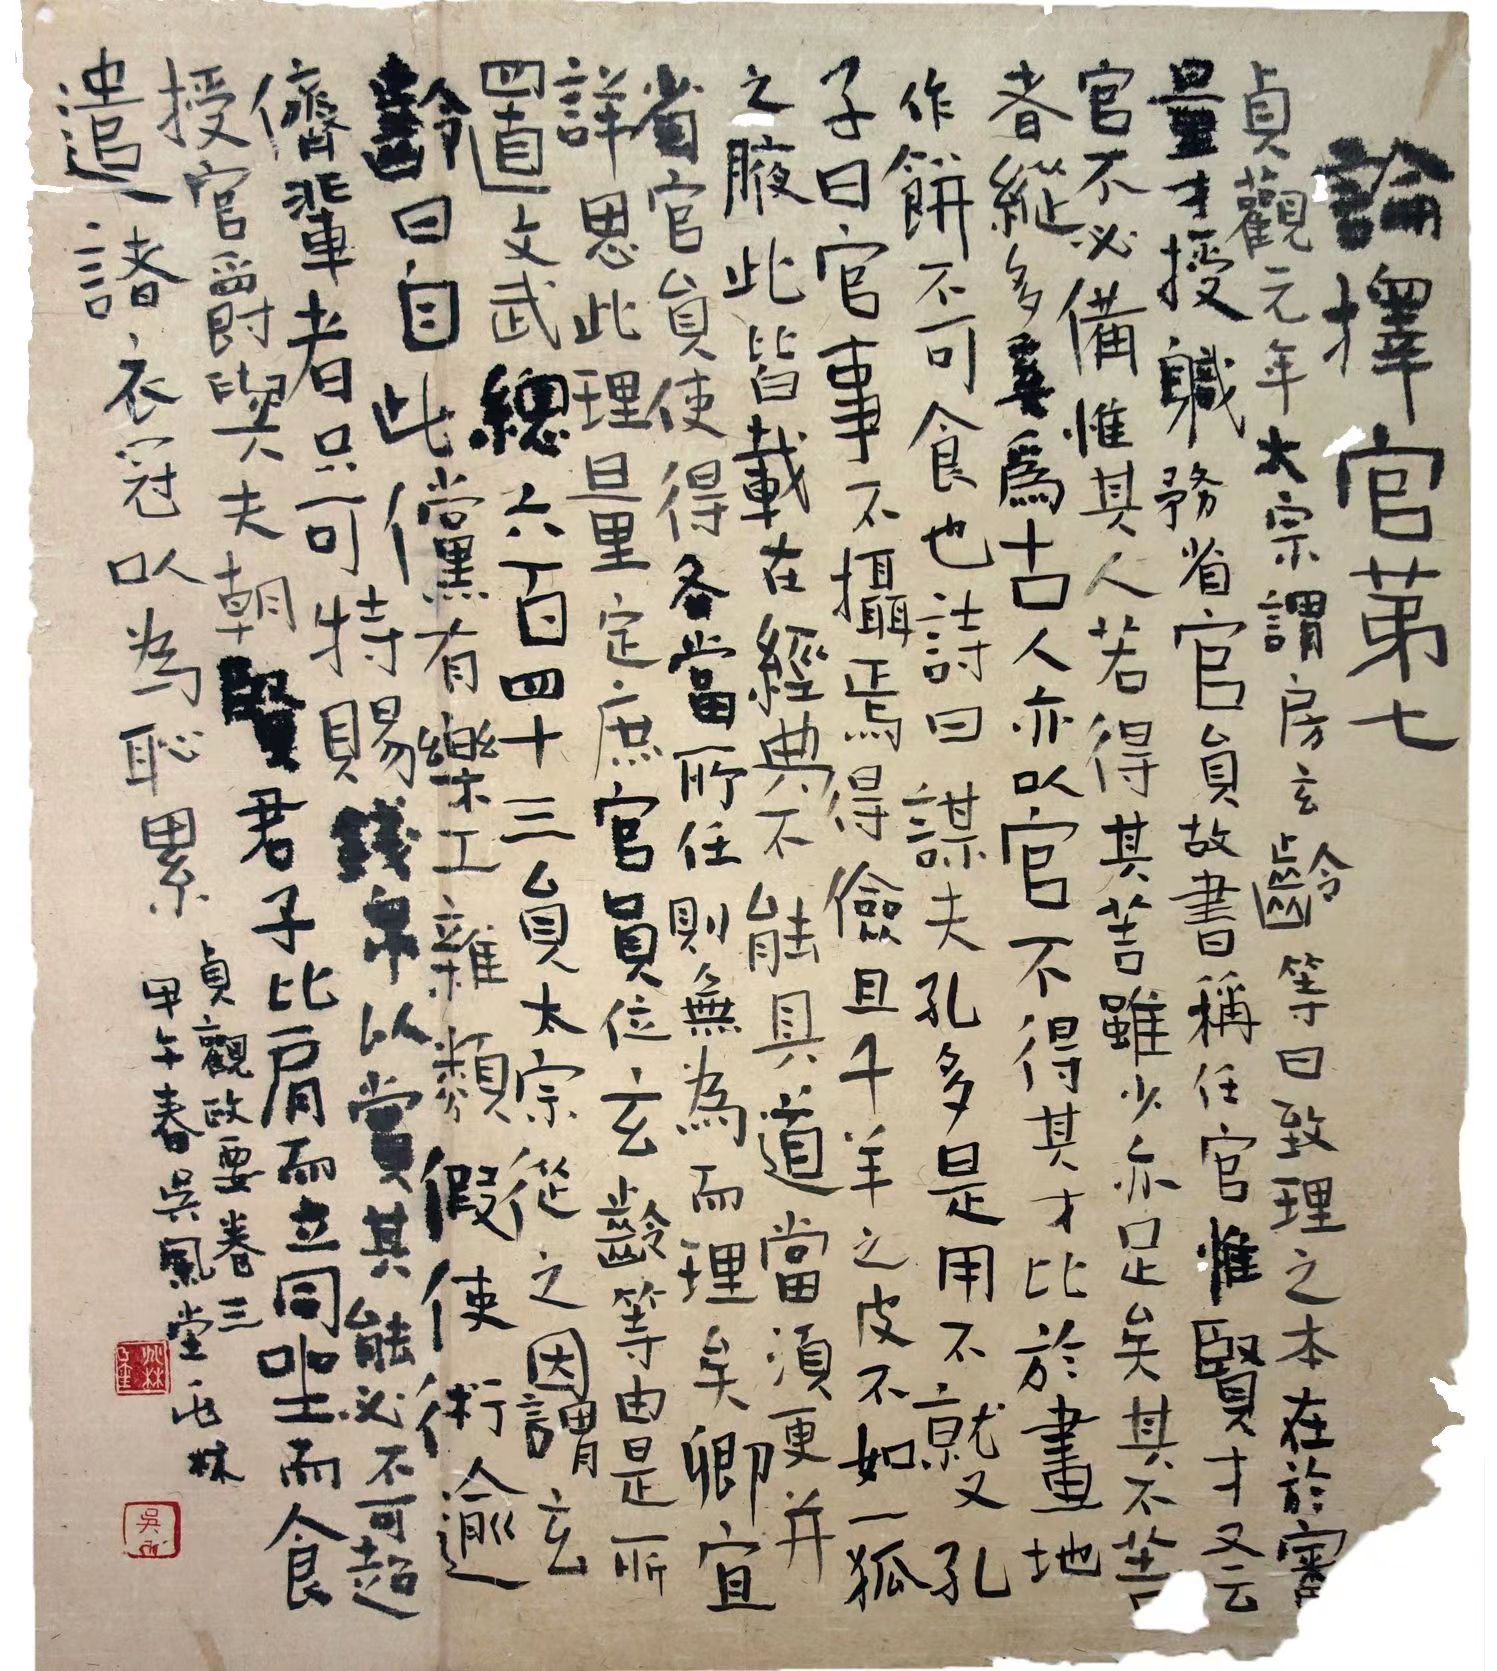 論擇官第七
貞觀元年太宗謂房玄齡等曰致理之本在於審
量才授職務省官員故書稱任官惟賢才又云
官不必備惟其人若得其善雖少亦足矣其不善
者縱多奚爲古人亦以官不得其才比於畫地
作餅不可食也詩曰謀夫孔多是用不就又孔
子曰官事不攝焉得儉且千羊之皮不如一狐
之腋此皆載在經典不能具道當須更并
省官員使得各當所任則無為而理矣卿宜
詳思此理量定庶官員位玄齡等由是所
置文武總六百四十三員太宗從之因謂玄
齡曰自此儻有樂工雜類假使術逾
儕輩者只可特賜錢帛以賞其能必不可超
授官爵與夫朝賢君子比肩而立同坐而食
遣諸衣冠以為恥累
貞觀政要卷三
甲午春吳風堂 林
吳